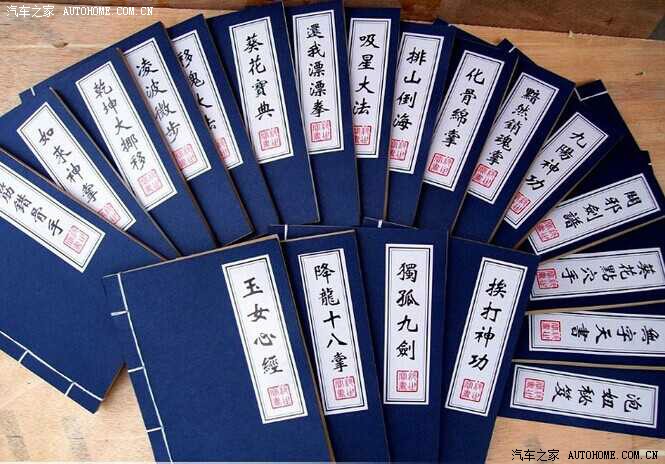 汽车之家 AUTOHOME.COM.CN
筋錯骨手
如來神掌
乾坤大挪移
凌波微步
移魂大法
葵花寶典
還我漂漂拳
吸星大法
排山倒海
化骨綿掌
黯然銷魂掌
九陽神功
闢邪劍譜
葵花點穴手
無字天書
泡妞秘笈
玉女心經
降龍十八掌
獨孤九劍
挨打神功
汽车之家 AUTOHOME.COM.CN